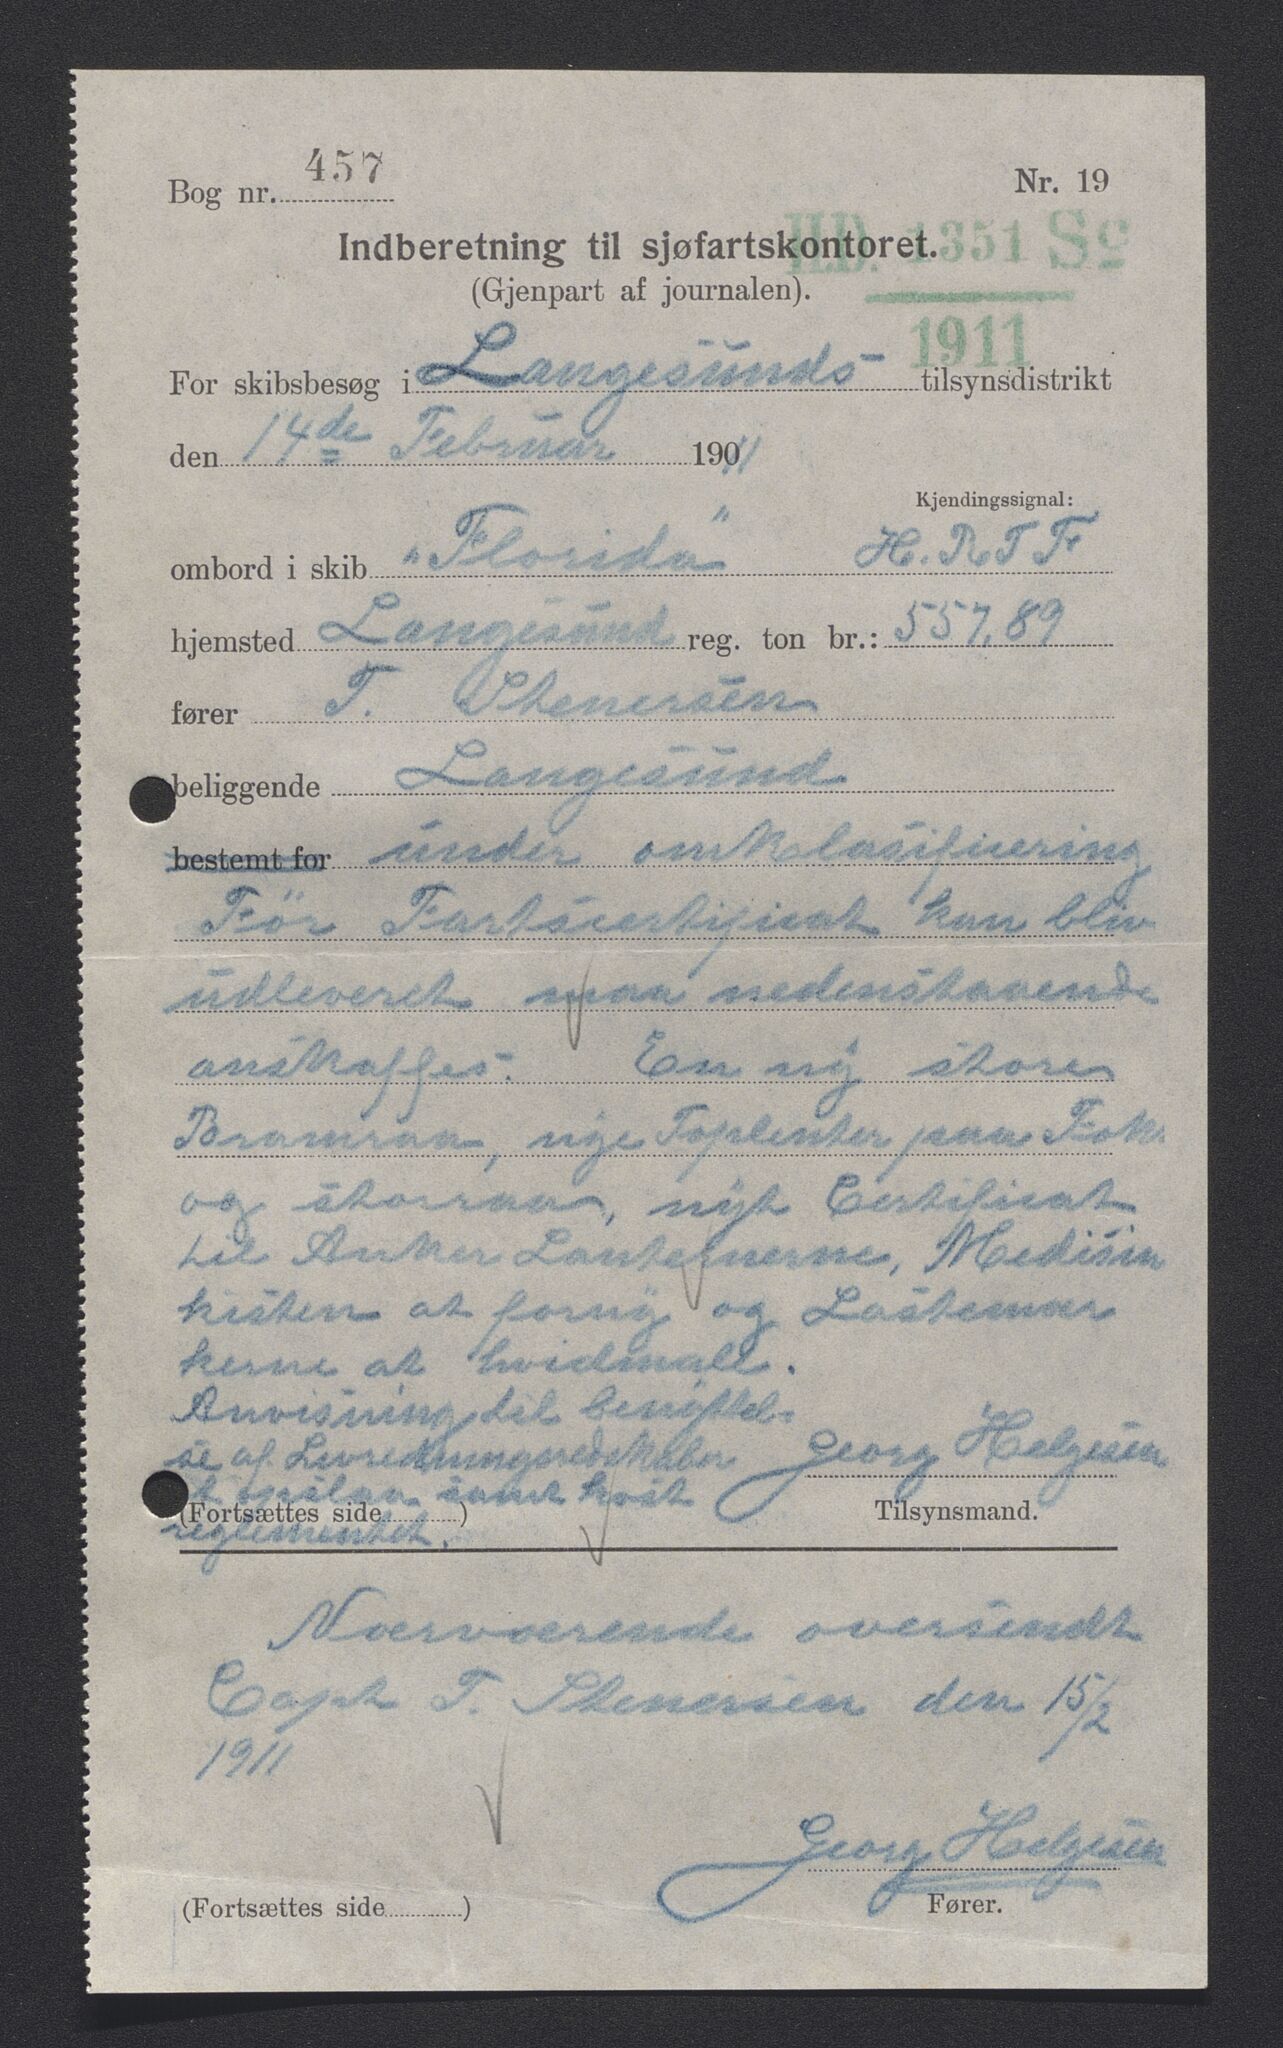 Bog nr. 457
Nr. 19
H.D. 1351 Sc
1911
Indberetning til sjøfartskontoret.
(Gjenpart af journalen).
For skibsbesøg i Langesunds tilsynsdistrikt
den 14de Februar 190 11
Kjendingssignal:
ombord i skib "Florida" H. R T F
hjemsted Langesund reg. ton br.: 557,89
fører T. Stenersen
beliggende Langesund
bestemt for under omklasificering
Før Fartscertificat kan bliv
udleveret maa nedenstaaende
anskaffes. En ny store
Bramraa, nye Toplenter paa Fok
og storraa, nyt Certificat
til Anker Lanternerne, Medisin
kisten at forny og Lastemær
kerne at hvidmale.
Anvisning til benyttel-
se af Livredningsredskaber
at opslaa samt kost
reglementet.
Georg Helgesen
(Fortsættes side ) Tilsynsmand.
Nærværende oversendt
Capt T. Stenersen den 15/2
1911
Georg Helgesen
(Fortsættes side ) Fører.